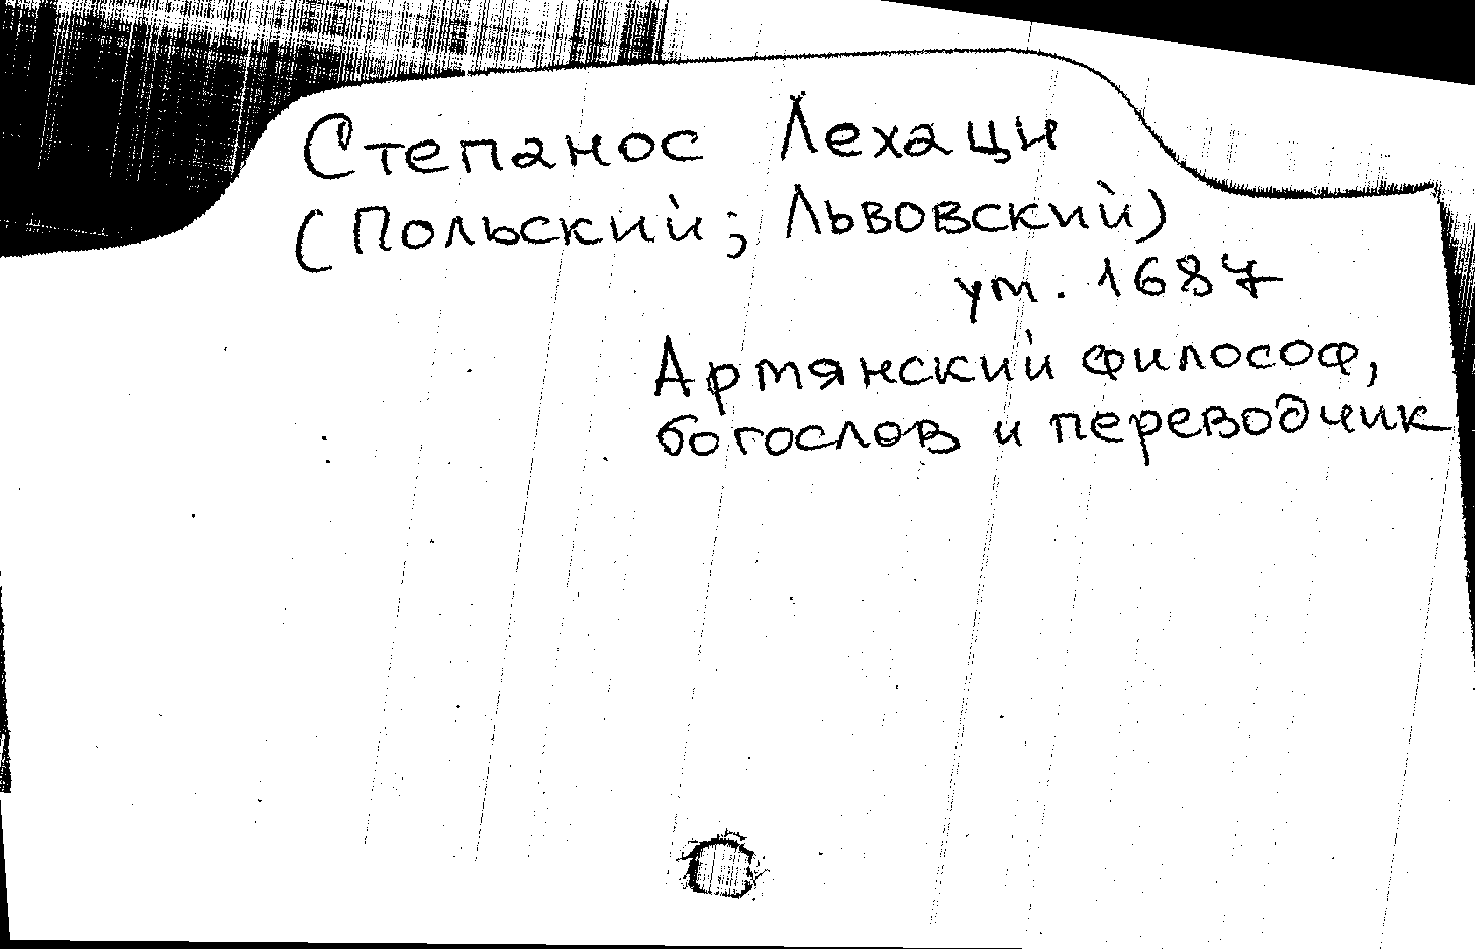 Степанос Лехаци
(Польский; Львовский)
ум. 1687
Армянский философ,
богослов и переводчик